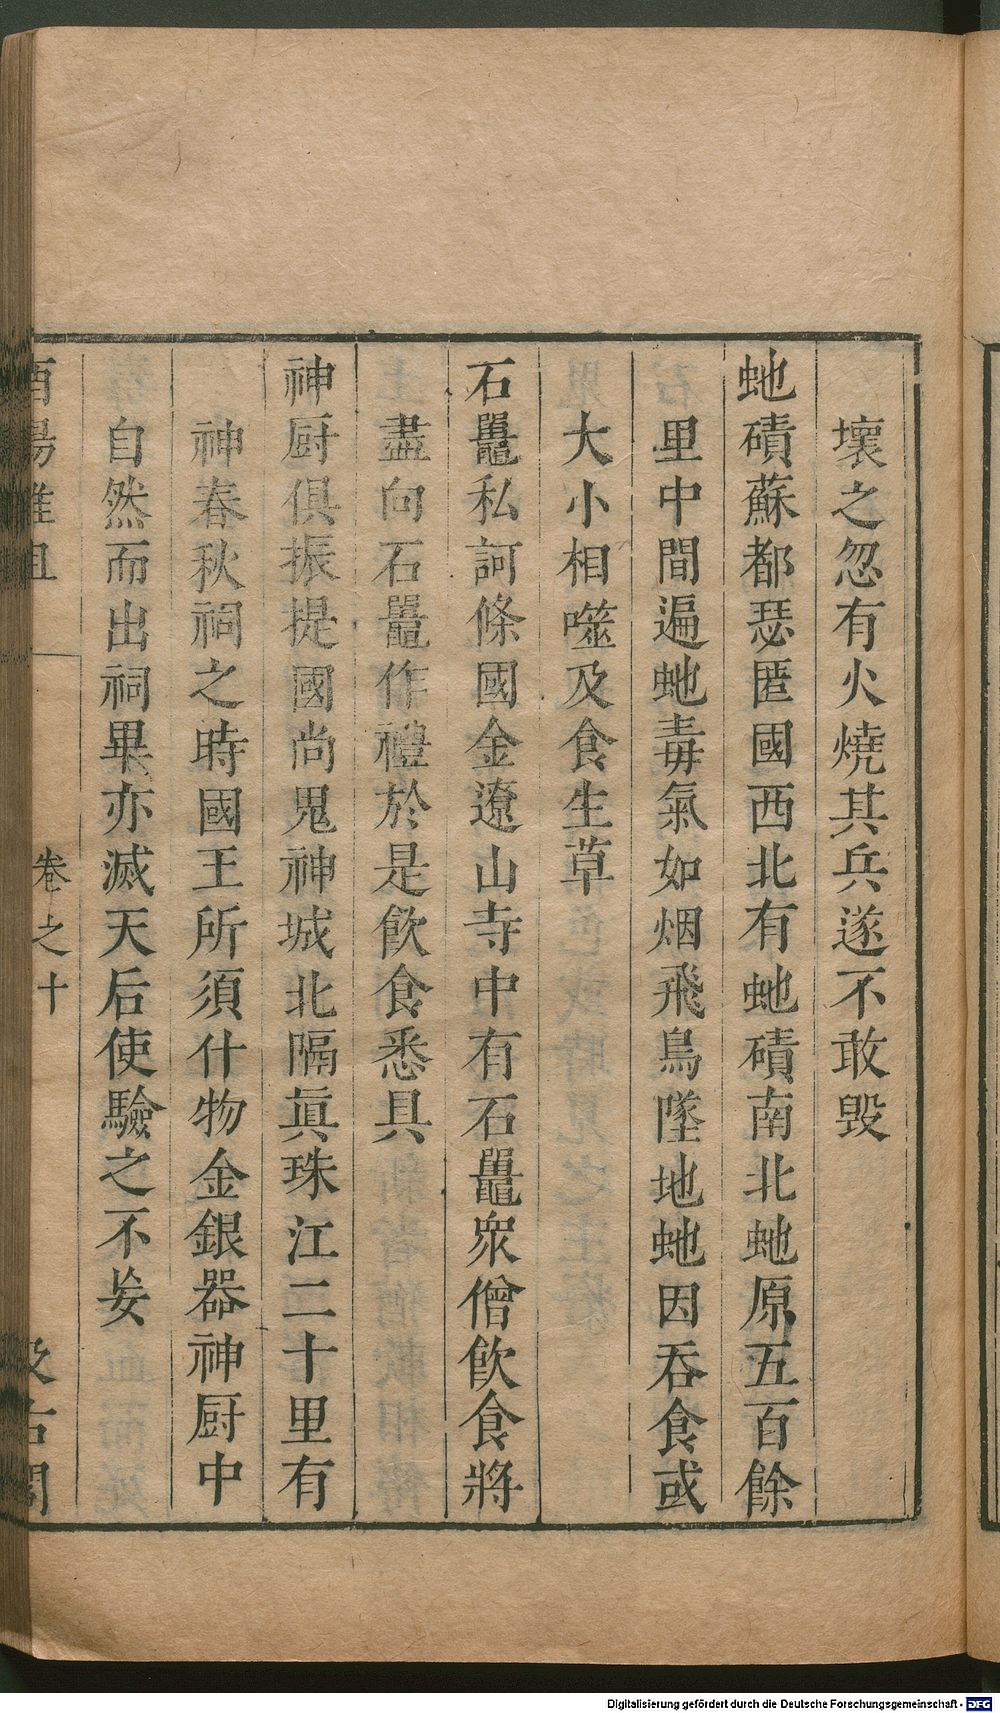 壞之忽有火燒其兵遂不敢毁
虵磧蘇都瑟匿國西北有虵磧南北虵原五百餘
里中間遍虵毒氣如烟飛鳥墜地虵因吞食或
大小相噬及食生草
石鼉私訶條國金遼山寺中有石鼉衆僧飲食將
盡向石鼉作禮於是飲食悉具
神厨俱振提國尚鬼神城北隔眞珠江二十里有
神春秋祠之時國王所須什物金銀器神厨中
自然而出祠畢亦滅天后使驗之不妄
酉陽雜俎
卷之十
汲古閣
Digitalisierung gefördert durch die Deutsche Forschungsgemeinschaft - DFG